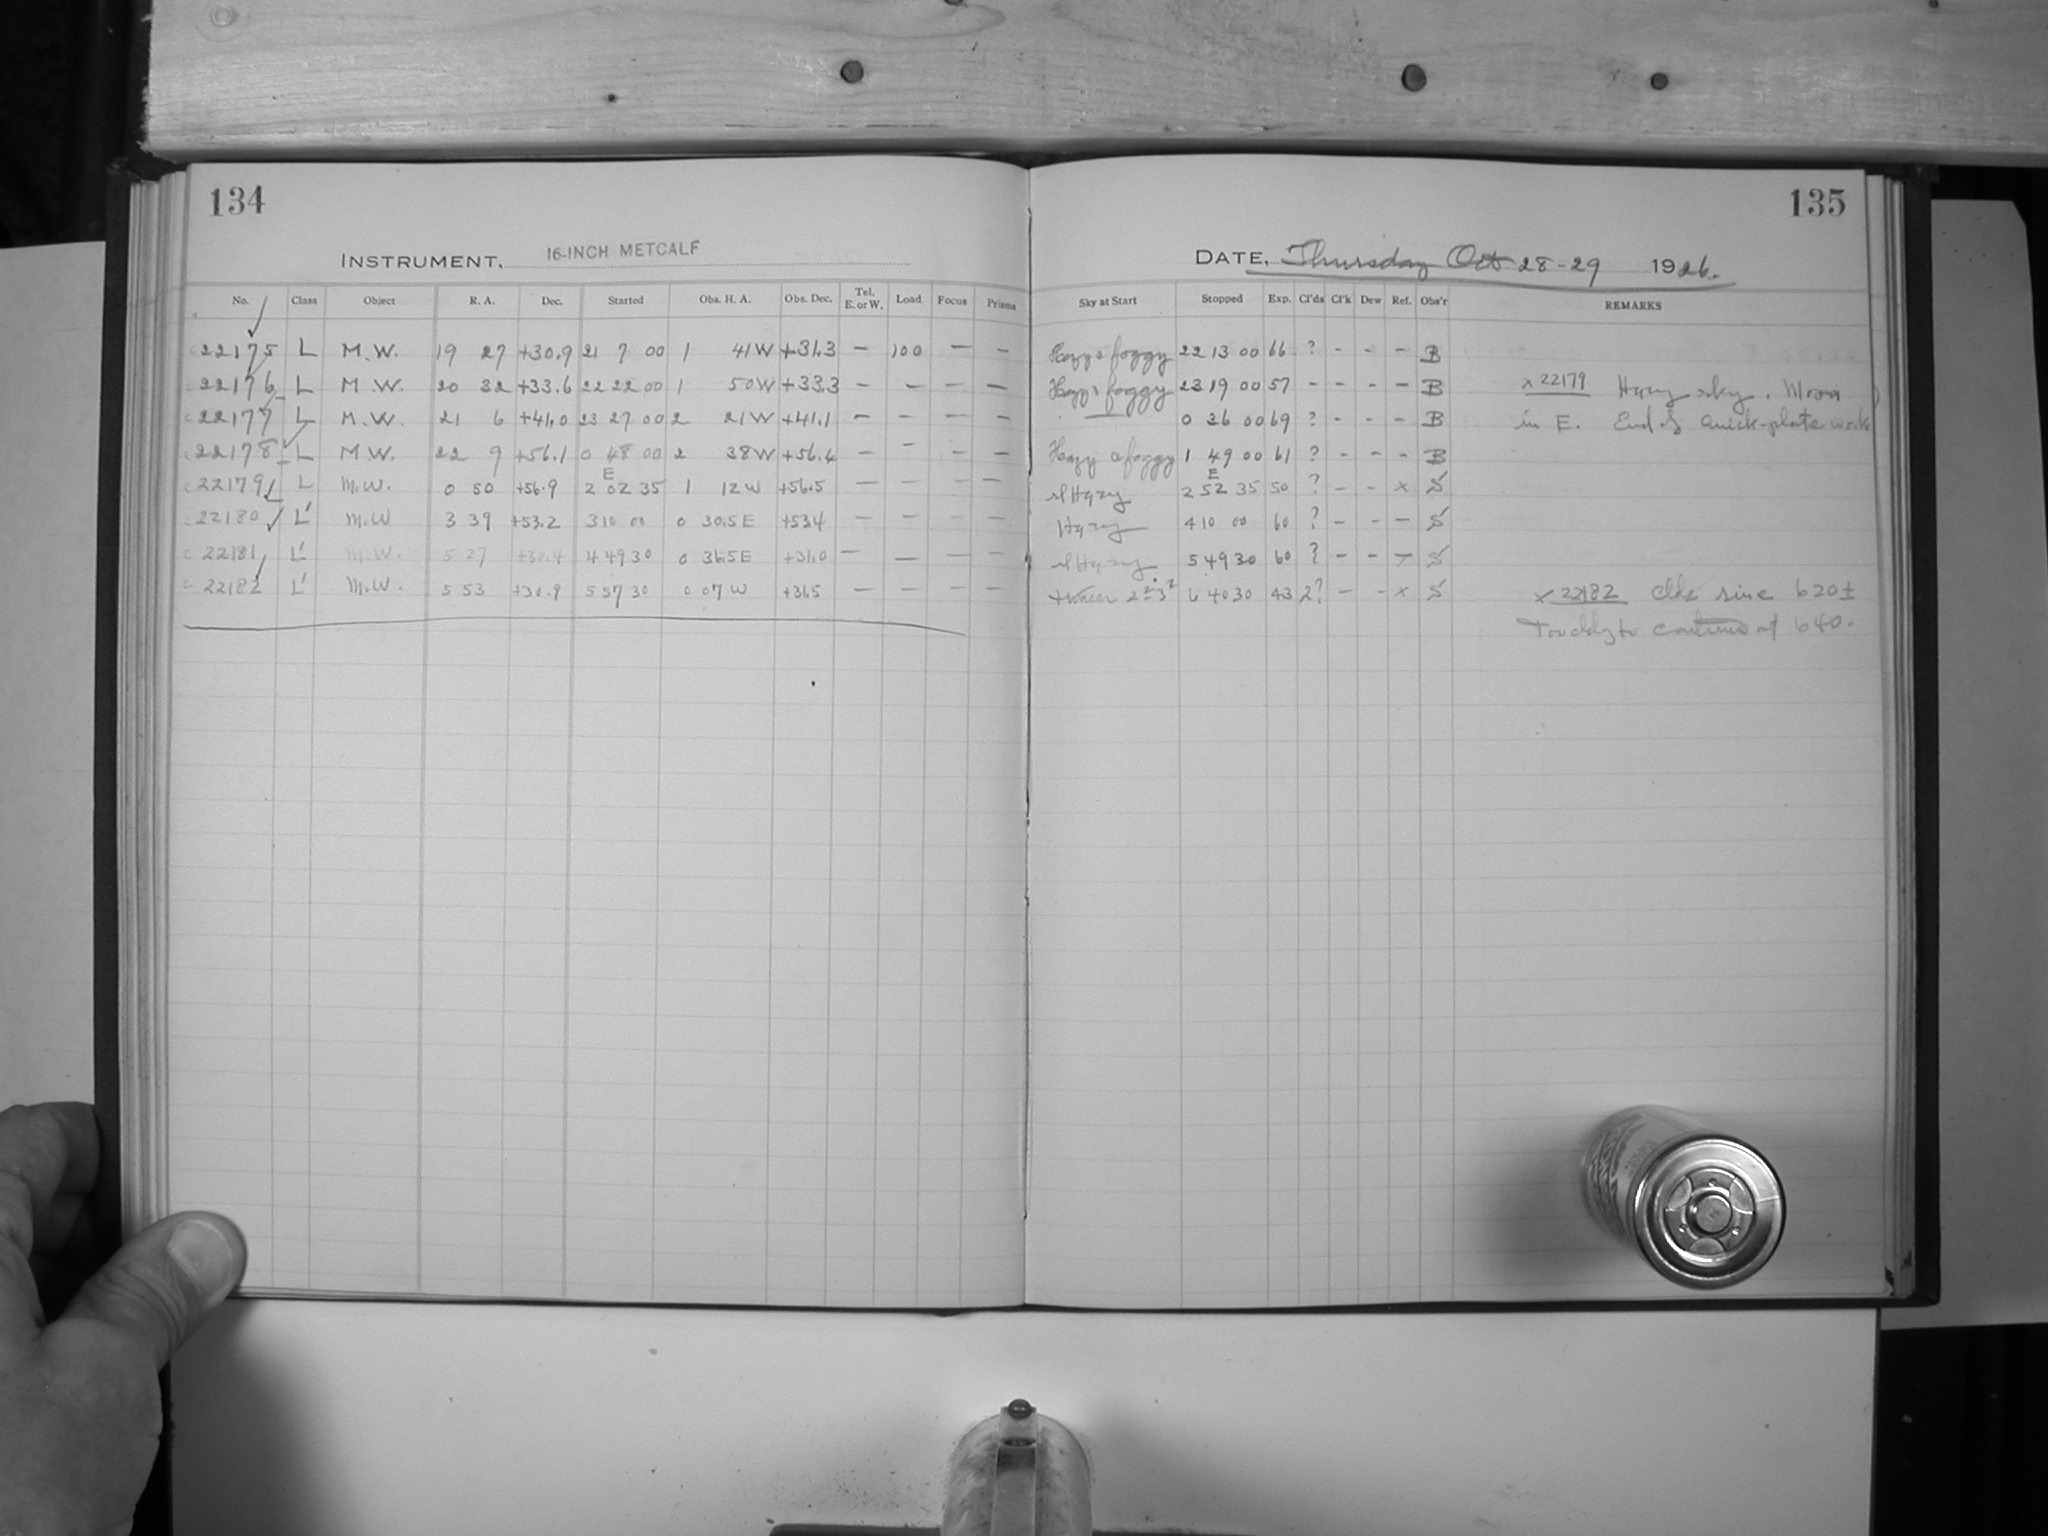 134
INSTRUMENT, 16-INCH METCALF
No. Class Object R. A. Dec. Started Obs. H. A. Obs. Dec. Tel. E. or W. Load Focus Prisms
22175 L M.W. 19 27 +30.9 21 7 00 1 41W +31.3 — 100 — —
22176 L M.W. 20 32 +33.6 22 22 00 1 50W +33.3 — — — —
22177 L M.W. 21 6 +41.0 23 27 00 2 21W +41.1 — — — —
22178 L M.W. 22 9 +56.1 0 48 00 2 38W +56.4 — — — —
22179 L M.W. 0 50 +56.9 2 02 35 E 1 12W +56.5 — — — —
22180 L' M.W 3 39 +53.2 3 10 00 0 30.5E +53.4 — — — —
22181 L' M.W. 5 27 +30.4 4 49 30 0 36.5E +31.0 — — — —
22182 L' M.W. 5 53 +30.9 5 57 30 0 07W +31.5 — — — —
135
DATE, Thursday Oct 28-29 1926.
Sky at Start Stopped Exp. Cl'ds Cl'k Dew Ref. Obs'r REMARKS
Hazy & foggy 22 13 00 66 ? - - - B
Hazy & foggy 23 19 00 57 - - - - B
— 0 36 00 69 ? - - - B
Hazy & foggy 1 49 00 61 ? - - - B
sl Hazy 2 52 35 E 50 ? - - x S
Hazy 4 10 00 60 ? - - - S
sl Hazy 5 49 30 60 ? - - - S
6 40 30 43 2? - - x S
x 22179 Hazy sky. Moon
in E. End of quick-plate work
x 22182 Clds since 620±
Too cldy to continue at 640.